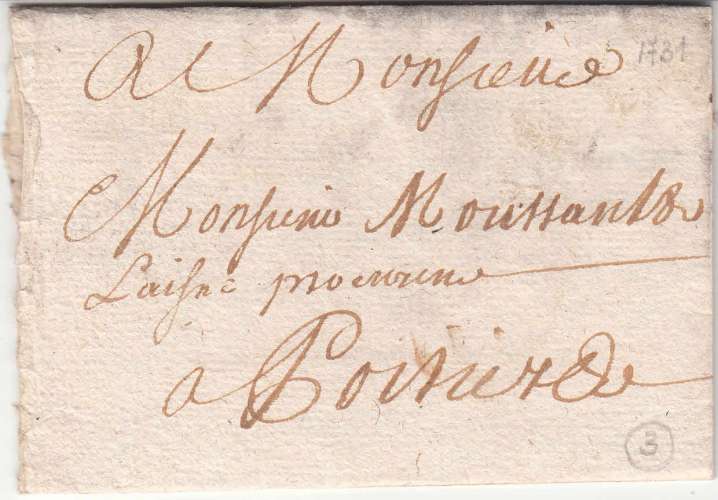 A Monsieur
1731
Monsieur Moussault
Laisné procureur
a Poitiers
3